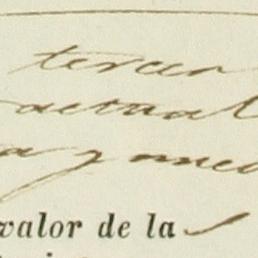 tercer
actual
a y med
valor de la